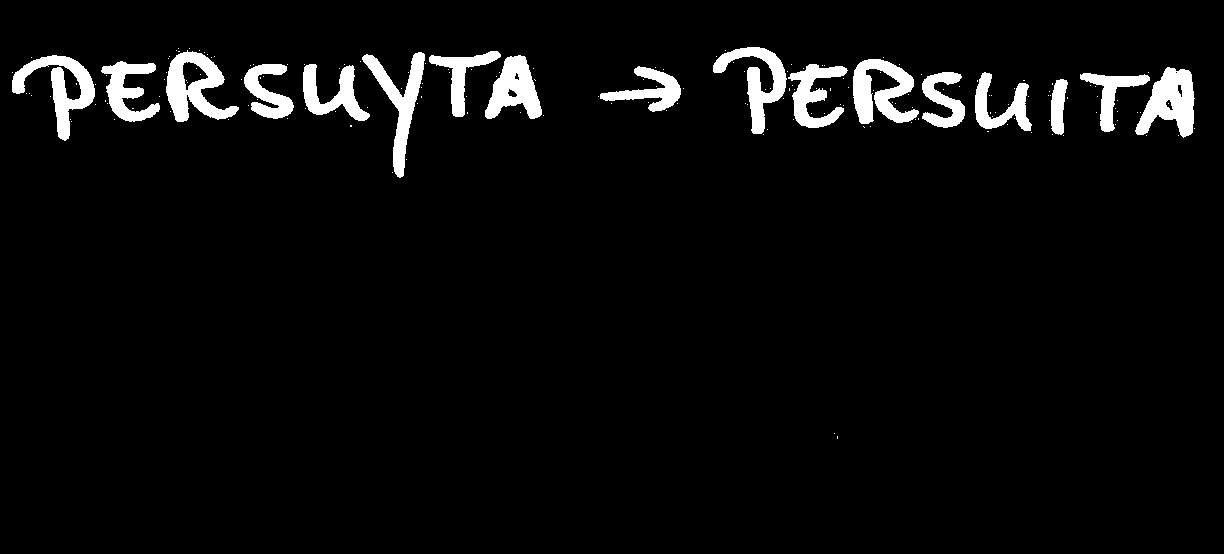 PERSUYTA → PERSUITA